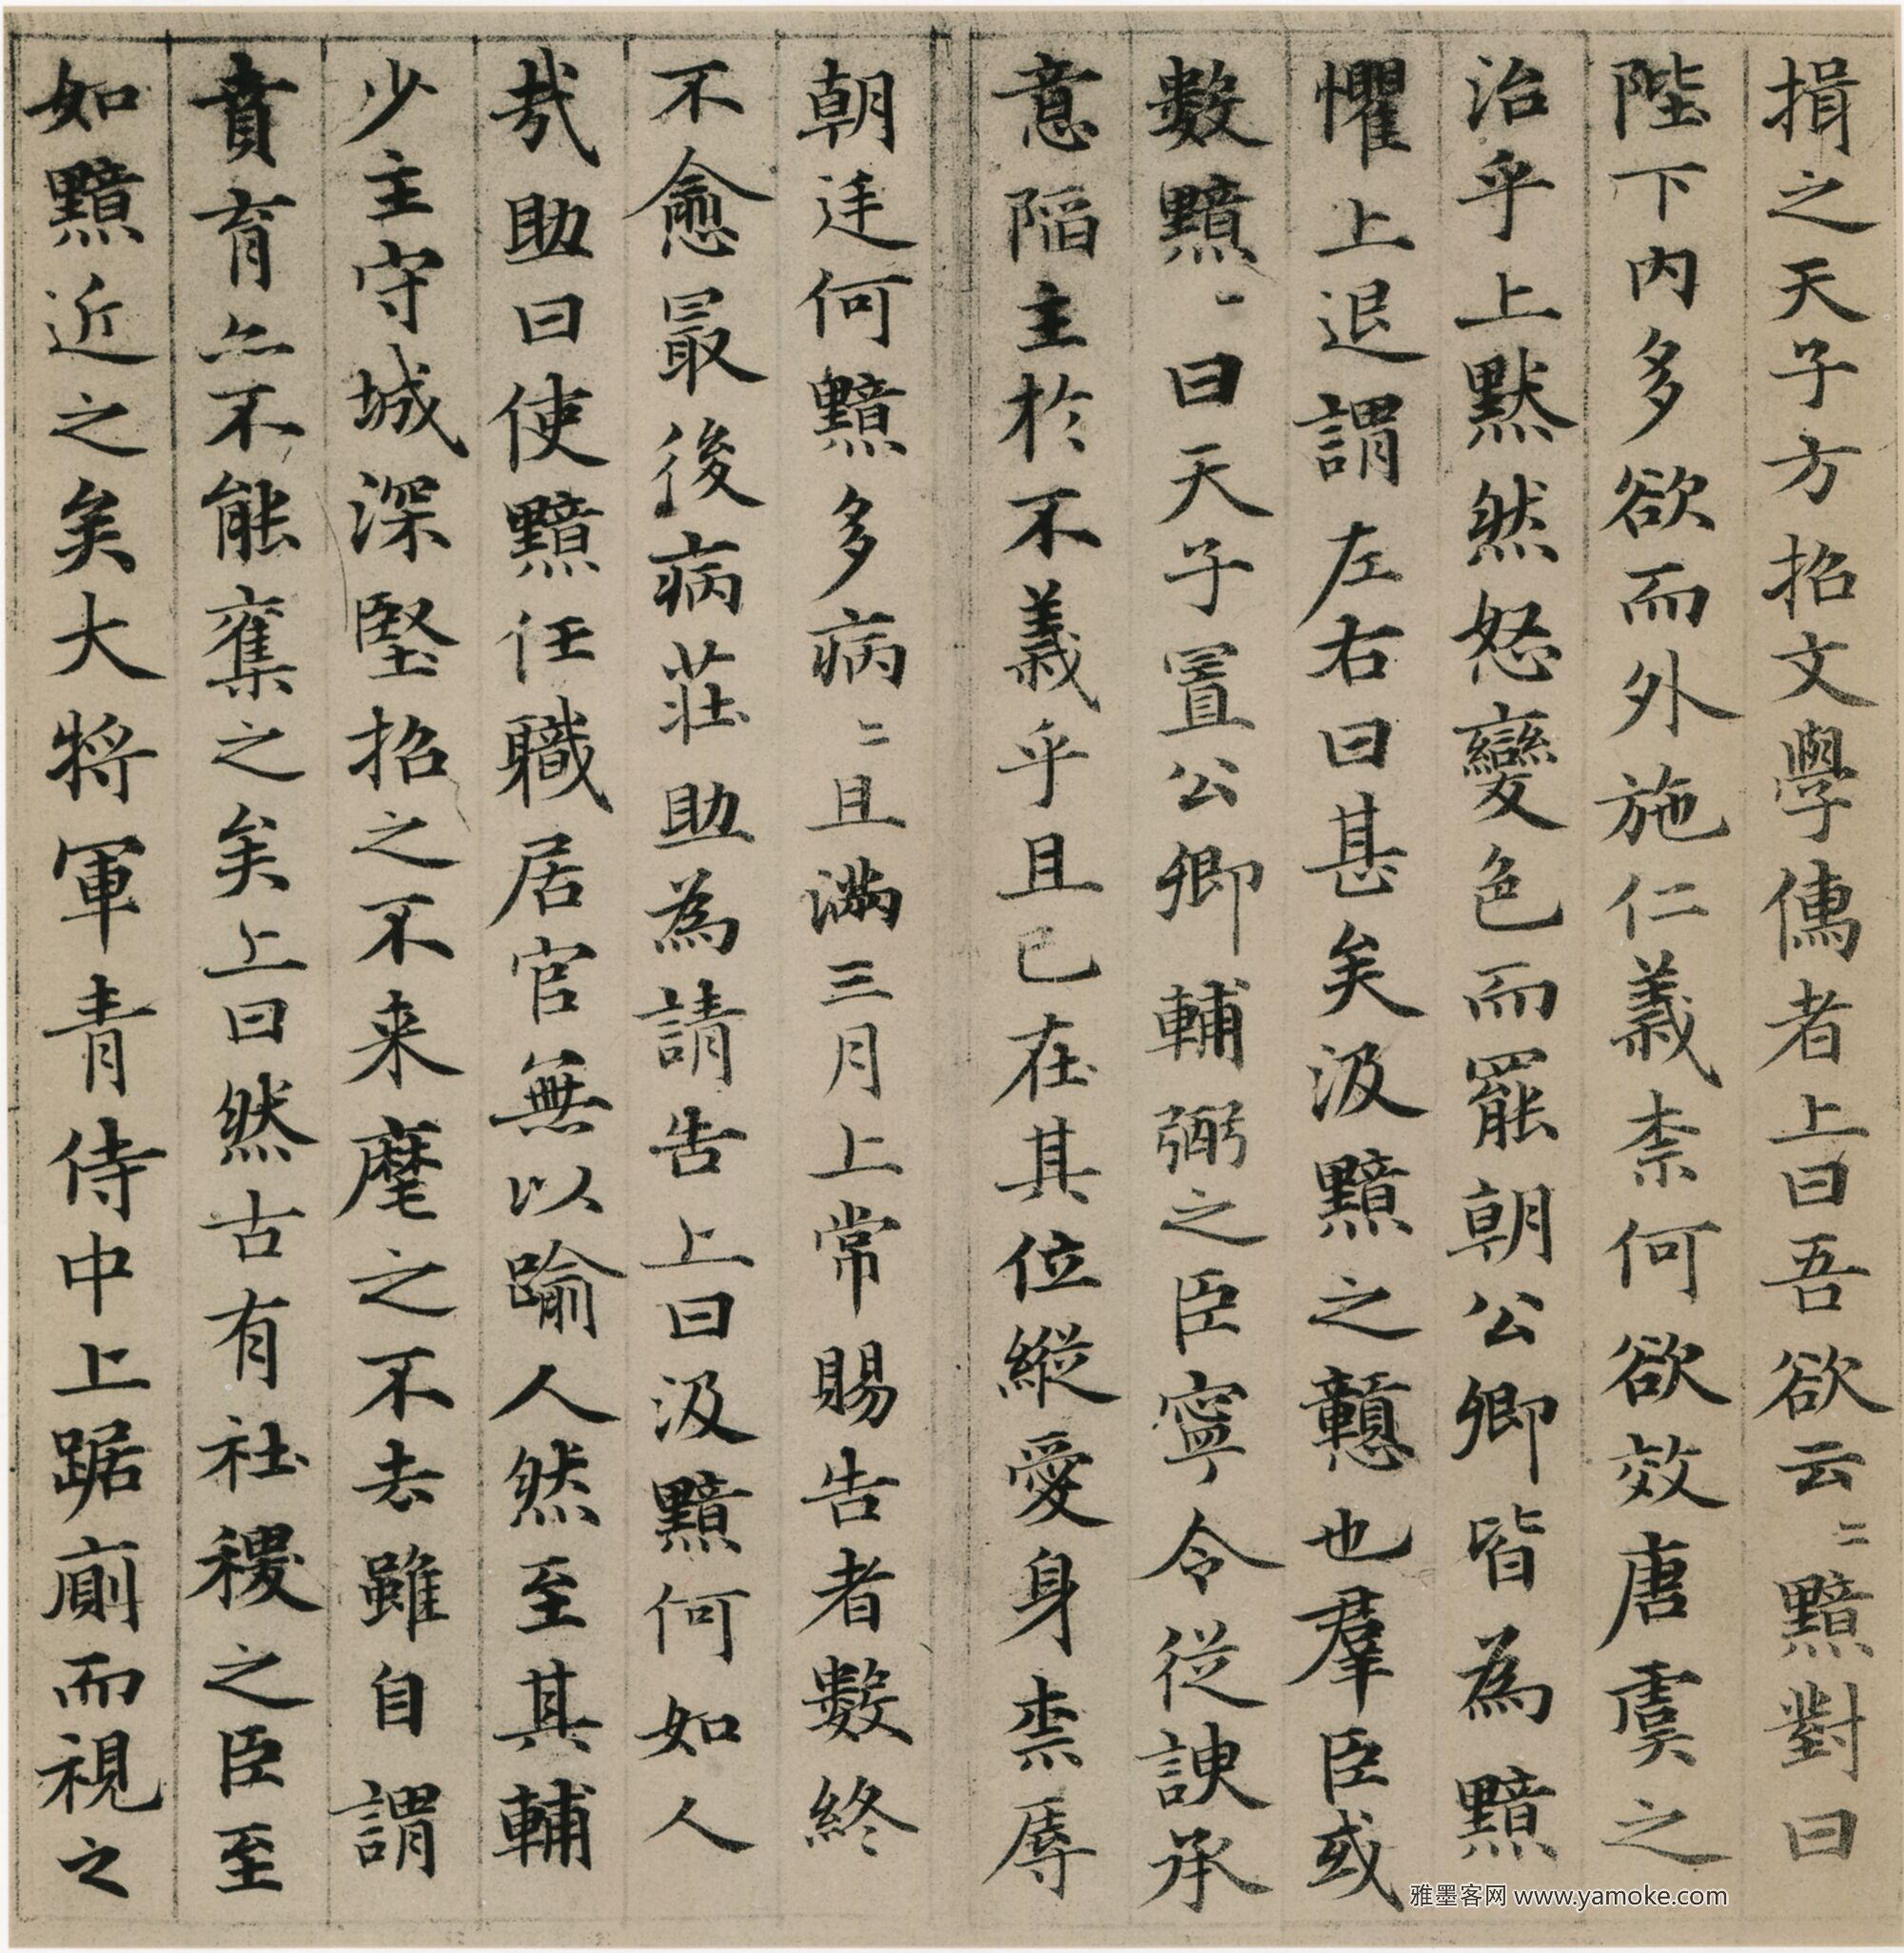 揖之天子方招文學儁者上曰吾欲云〻黯對曰
陛下内多欲而外施仁義柰何欲效唐虞之
治乎上默然怒變色而罷朝公卿皆為黯
懼上退謂左右曰甚矣汲黯之戇也羣臣或
數黯〻曰天子置公卿輔弼之臣寧令從諛承
意陷主於不義乎且已在其位縱愛身柰辱
朝廷何黯多病〻且滿三月上常賜告者數終
不愈最後病莊助為請告上曰汲黯何如人
㢤助曰使黯任職居官無以踰人然至其輔
少主守城深堅招之不来麾之不去雖自謂
賁育亦不能奪之矣上曰然古有社稷之臣至
如黯近之矣大將軍青侍中上踞廁而視之
雅墨客网 www.yamoke.com